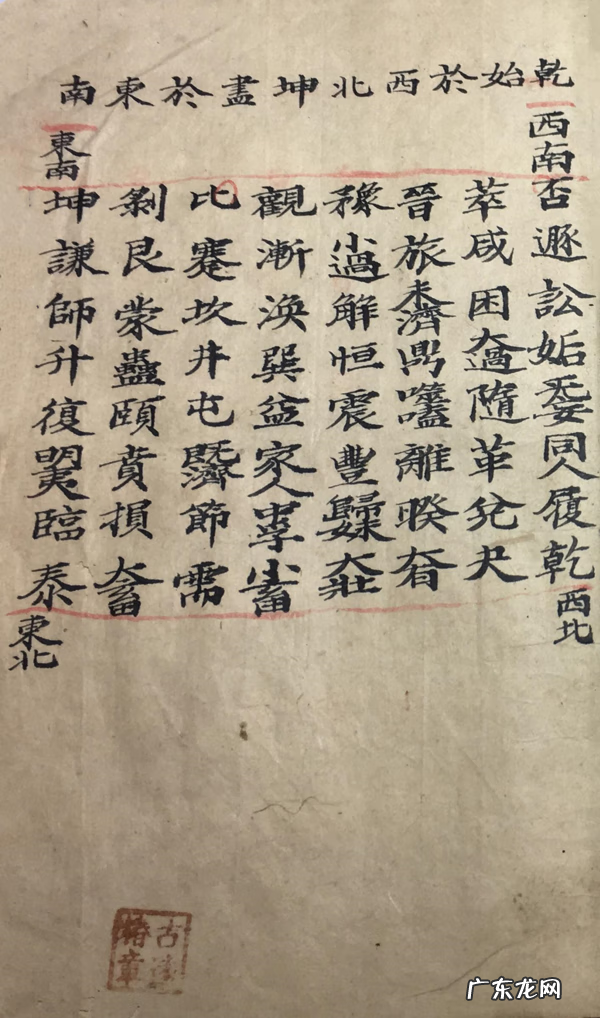 乾始於西北坤盡於東南
西南
否遯訟姤无妄同人履乾
西北
萃咸困大過隨革兌夬
晉旅未濟鼎噬嗑離睽大有
豫小過解恒震豐歸妹大壯
觀漸渙巽益家人中孚小畜
比蹇坎井屯既濟節需
剝艮蒙蠱頤賁損大畜
東南
坤謙師升復明夷臨泰
東北
广东龙网